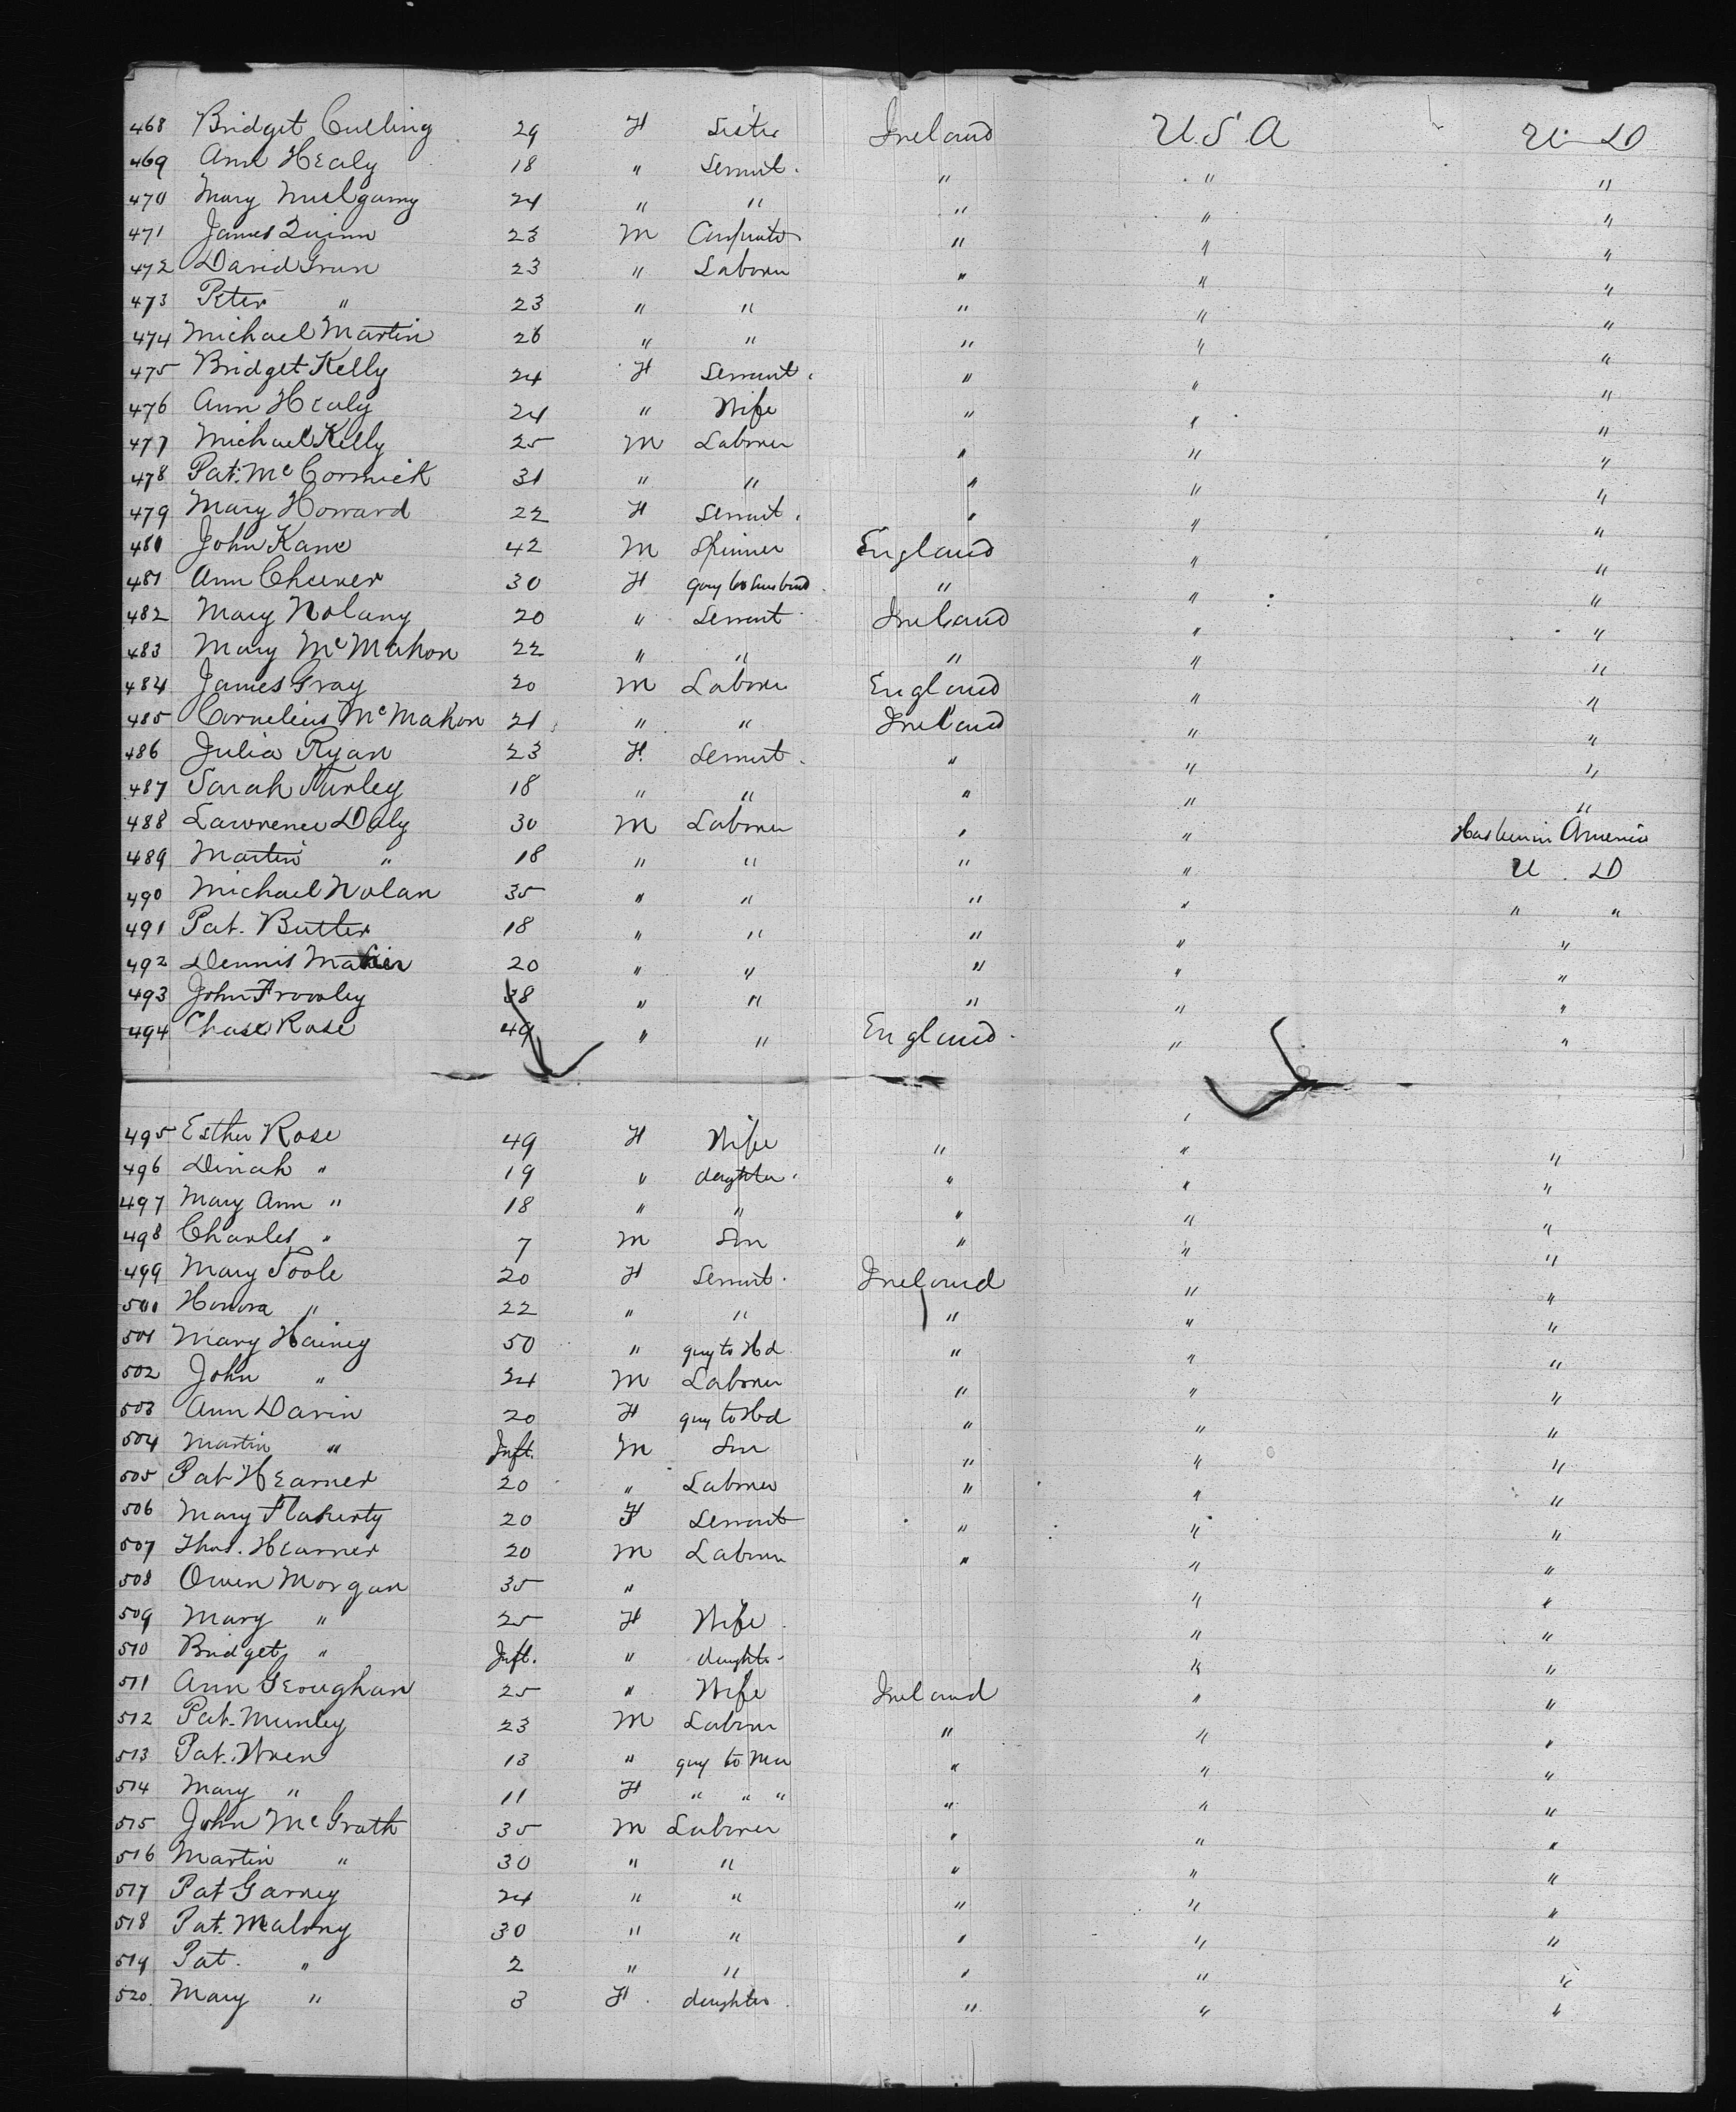 468 Bridget Culling 29 F Sister Ireland U.S.A U D
469 Ann Healy 18 " Servnt. " " "
470 Mary 24 " " " " "
471 James Quinn 23 M " " "
472 David 23 " Laborer " " "
473 Peter " 23 " " " " "
474 Michael Martin 26 " " " " "
475 Bridget Kelly 24 F Servant. " " "
476 Ann Healy 24 " Wife " " "
477 Michael Kelly 25 M Laborer " " "
478 Pat. McCormick 31 " " " " "
479 Mary Howard 22 F Servnt. " " "
480 John Kane 42 M Spinner England " "
481 Ann 30 F gng to husbnd. " " "
482 Mary Nolany 20 " Servnt Ireland " "
483 Mary McMahon 22 " " " " "
484 James Gray 20 M Laborer England " "
485 Cornelius McMahon 21 " " Ireland " "
486 Julia Ryan 23 F. Servnt. " " "
487 Sarah 18 " " " " "
488 Lawrence Daly 30 M Laborer " " America
489 Martin " 18 " " " " U. D
490 Michael Nolan 35 " " " " " "
491 Pat. Butler 18 " " " " "
492 Dennis 20 " " " " "
493 John Frowley 38 " " " " "
494 Rose 49 " " England. " "
495 Esther Rose 49 F Wife " " "
496 Dinah " 19 " daughter. " " "
497 Mary Ann " 18 " " " " "
498 Charles " 7 M Son " " "
499 Mary Toole 20 F Servnt. Ireland " "
500 Honora " 22 " " " " "
501 Mary Hainey 50 " gng to Hd " " "
502 John " 24 M Laborer " " "
503 Ann Davin 20 F gng to Hd " " "
504 Martin " Inft. M Son " " "
505 Pat Hearner 20 " Laborer " " "
506 Mary Flaherty 20 F Servant " " "
507 Thos. Hearner 20 M Laborer " " "
508 Owen Morgan 35 " " "
509 Mary " 25 F Wife. " "
510 Bridget " Inft. " daughtr. " "
511 Ann Geoughan 25 " Wife Ireland " "
512 Pat. Munley 23 M Laborer " " "
513 Pat. Wren 13 " gng to " " "
514 Mary " 11 F " " " " " "
515 John McGrath 35 M Laborer " " "
516 Martin " 30 " " " " "
517 Pat Garney 24 " " " " "
518 Pat. Malony 30 " " " " "
519 Pat. " 2 " " " " "
520. Mary " 3 F. daughter. " " "